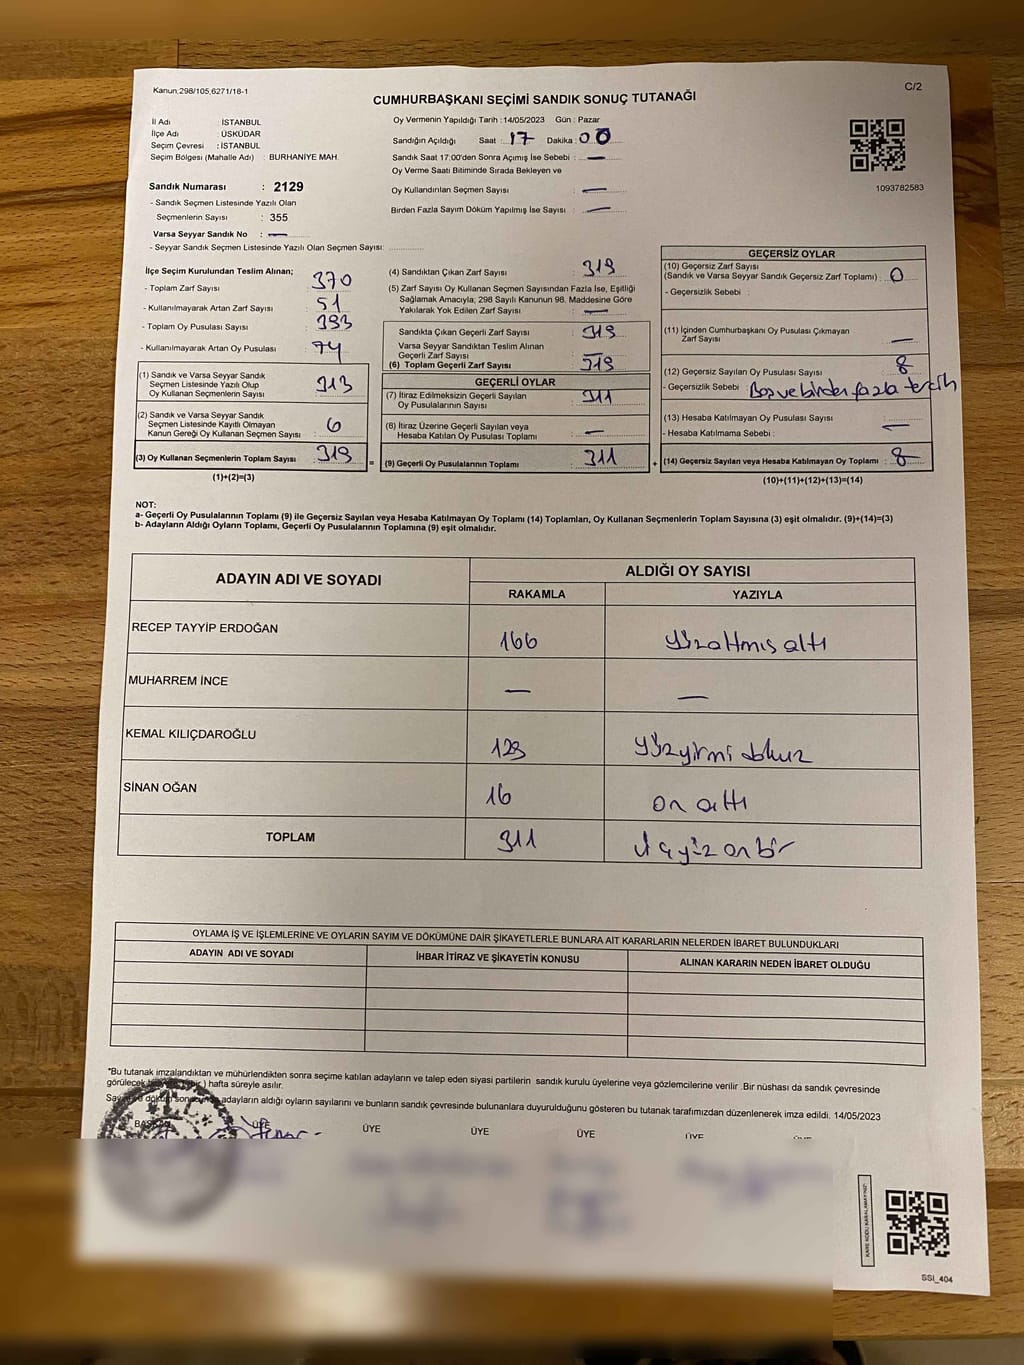 Kanun;298/105,6271/18-1
C/2
CUMHURBAŞKANI SEÇİMİ SANDIK SONUÇ TUTANAĞI
İl Adı : İSTANBUL
İlçe Adı : ÜSKÜDAR
Seçim Çevresi : İSTANBUL
Seçim Bölgesi (Mahalle Adı) : BURHANİYE MAH.
Sandık Numarası : 2129
- Sandık Seçmen Listesinde Yazılı Olan
Seçmenlerin Sayısı : 355
Varsa Seyyar Sandık No : —
- Seyyar Sandık Seçmen Listesinde Yazılı Olan Seçmen Sayısı: ............
Oy Vermenin Yapıldığı Tarih : 14/05/2023 Gün : Pazar
Sandığın Açıldığı Saat : 17 Dakika : 00
Sandık Saat 17:00'den Sonra Açımış İse Sebebi : —
Oy Verme Saati Bitiminde Sırada Bekleyen ve
Oy Kullandırılan Seçmen Sayısı : —
Birden Fazla Sayım Döküm Yapılmış İse Sayısı : —
1093782583
İlçe Seçim Kurulundan Teslim Alınan;
- Toplam Zarf Sayısı : 370
- Kullanılmayarak Artan Zarf Sayısı : 51
- Toplam Oy Pusulası Sayısı : 393
- Kullanılmayarak Artan Oy Pusulası : 74
(1) Sandık ve Varsa Seyyar Sandık
Seçmen Listesinde Yazılı Olup
Oy Kullanan Seçmenlerin Sayısı : 313
(2) Sandık ve Varsa Seyyar Sandık
Seçmen Listesinde Kayıtlı Olmayan
Kanun Gereği Oy Kullanan Seçmen Sayısı : 6
(3) Oy Kullanan Seçmenlerin Toplam Sayısı : 319
(1)+(2)=(3)
(4) Sandıktan Çıkan Zarf Sayısı : 319
(5) Zarf Sayısı Oy Kullanan Seçmen Sayısından Fazla İse, Eşitliği
Sağlamak Amacıyla; 298 Sayılı Kanunun 98. Maddesine Göre
Yakılarak Yok Edilen Zarf Sayısı : —
Sandıkta Çıkan Geçerli Zarf Sayısı : 319
Varsa Seyyar Sandıktan Teslim Alınan
Geçerli Zarf Sayısı :
(6) Toplam Geçerli Zarf Sayısı : 319
GEÇERLİ OYLAR
(7) İtiraz Edilmeksizin Geçerli Sayılan
Oy Pusulalarının Sayısı : 311
(8) İtiraz Üzerine Geçerli Sayılan veya
Hesaba Katılan Oy Pusulası Toplamı : —
= (9) Geçerli Oy Pusulalarının Toplamı : 311
GEÇERSİZ OYLAR
(10) Geçersiz Zarf Sayısı
(Sandık ve Varsa Seyyar Sandık Geçersiz Zarf Toplamı) : 0
- Geçersizlik Sebebi :
(11) İçinden Cumhurbaşkanı Oy Pusulası Çıkmayan
Zarf Sayısı : —
(12) Geçersiz Sayılan Oy Pusulası Sayısı : 8
- Geçersizlik Sebebi : Boş ve birden fazla tercih
(13) Hesaba Katılmayan Oy Pusulası Sayısı : —
- Hesaba Katılmama Sebebi :
+ (14) Geçersiz Sayılan veya Hesaba Katılmayan Oy Toplamı : 8
(10)+(11)+(12)+(13)=(14)
NOT:
a- Geçerli Oy Pusulalarının Toplamı (9) ile Geçersiz Sayılan veya Hesaba Katılmayan Oy Toplamı (14) Toplamları, Oy Kullanan Seçmenlerin Toplam Sayısına (3) eşit olmalıdır. (9)+(14)=(3)
b- Adayların Aldığı Oyların Toplamı, Geçerli Oy Pusulalarının Toplamına (9) eşit olmalıdır.
ADAYIN ADI VE SOYADI
ALDIĞI OY SAYISI
RAKAMLA YAZIYLA
RECEP TAYYİP ERDOĞAN 166 Yüzaltmış altı
MUHARREM İNCE — —
KEMAL KILIÇDAROĞLU 129 Yüzyirmi dokuz
SİNAN OĞAN 16 on altı
TOPLAM 311 üçyüz onbir
OYLAMA İŞ VE İŞLEMLERİNE VE OYLARIN SAYIM VE DÖKÜMÜNE DAİR ŞİKAYETLERLE BUNLARA AİT KARARLARIN NELERDEN İBARET BULUNDUKLARI
ADAYIN ADI VE SOYADI İHBAR İTİRAZ VE ŞİKAYETİN KONUSU ALINAN KARARIN NEDEN İBARET OLDUĞU
*Bu tutanak imzalandıktan ve mühürlendikten sonra seçime katılan adayların ve talep eden siyasi partilerin sandık kurulu üyelerine veya gözlemcilerine verilir .Bir nüshası da sandık çevresinde
görülecek hafta süreyle asılır.
adayların aldığı oyların sayılarını ve bunların sandık çevresinde bulunanlara duyurulduğunu gösteren bu tutanak tarafımızdan düzenlenerek imza edildi. 14/05/2023
BAŞKAN ÜYE ÜYE ÜYE ÜYE ÜYE
SSI_404